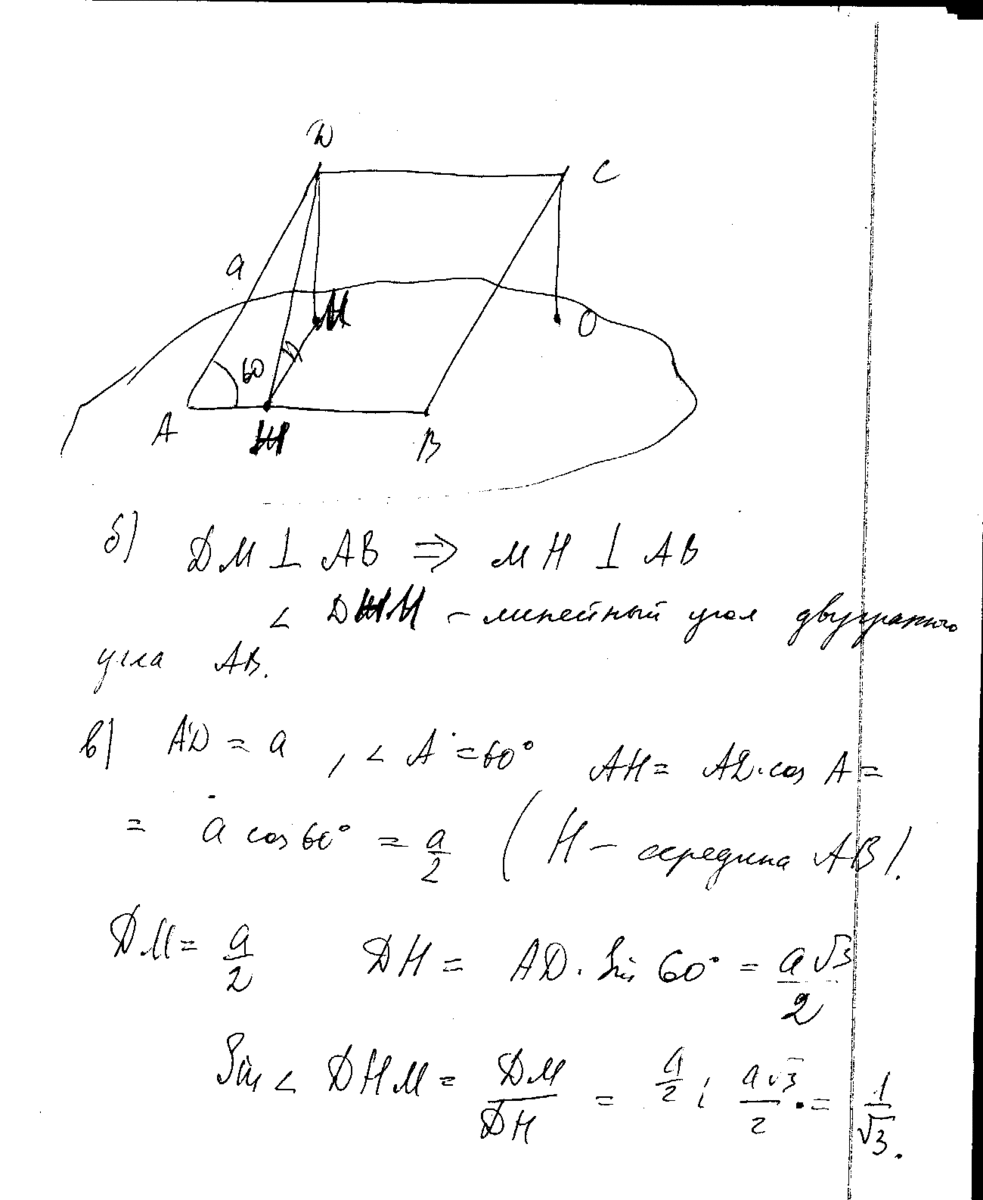 D
C
a
M
O
60
A
H
B
б) DM ⊥ AB ⇒ MH ⊥ AB
∠ DHM – линейный угол двугранного
угла AB.
в) AD = a , ∠ A = 60° AH = AD·cos A =
= a cos 60° = a/2 ( H – середина AB).
DM = a/2 DH = AD · Sin 60° = a√3/2
Sin ∠ DHM = DM/DH = a/2 : a√3/2 = 1/√3.